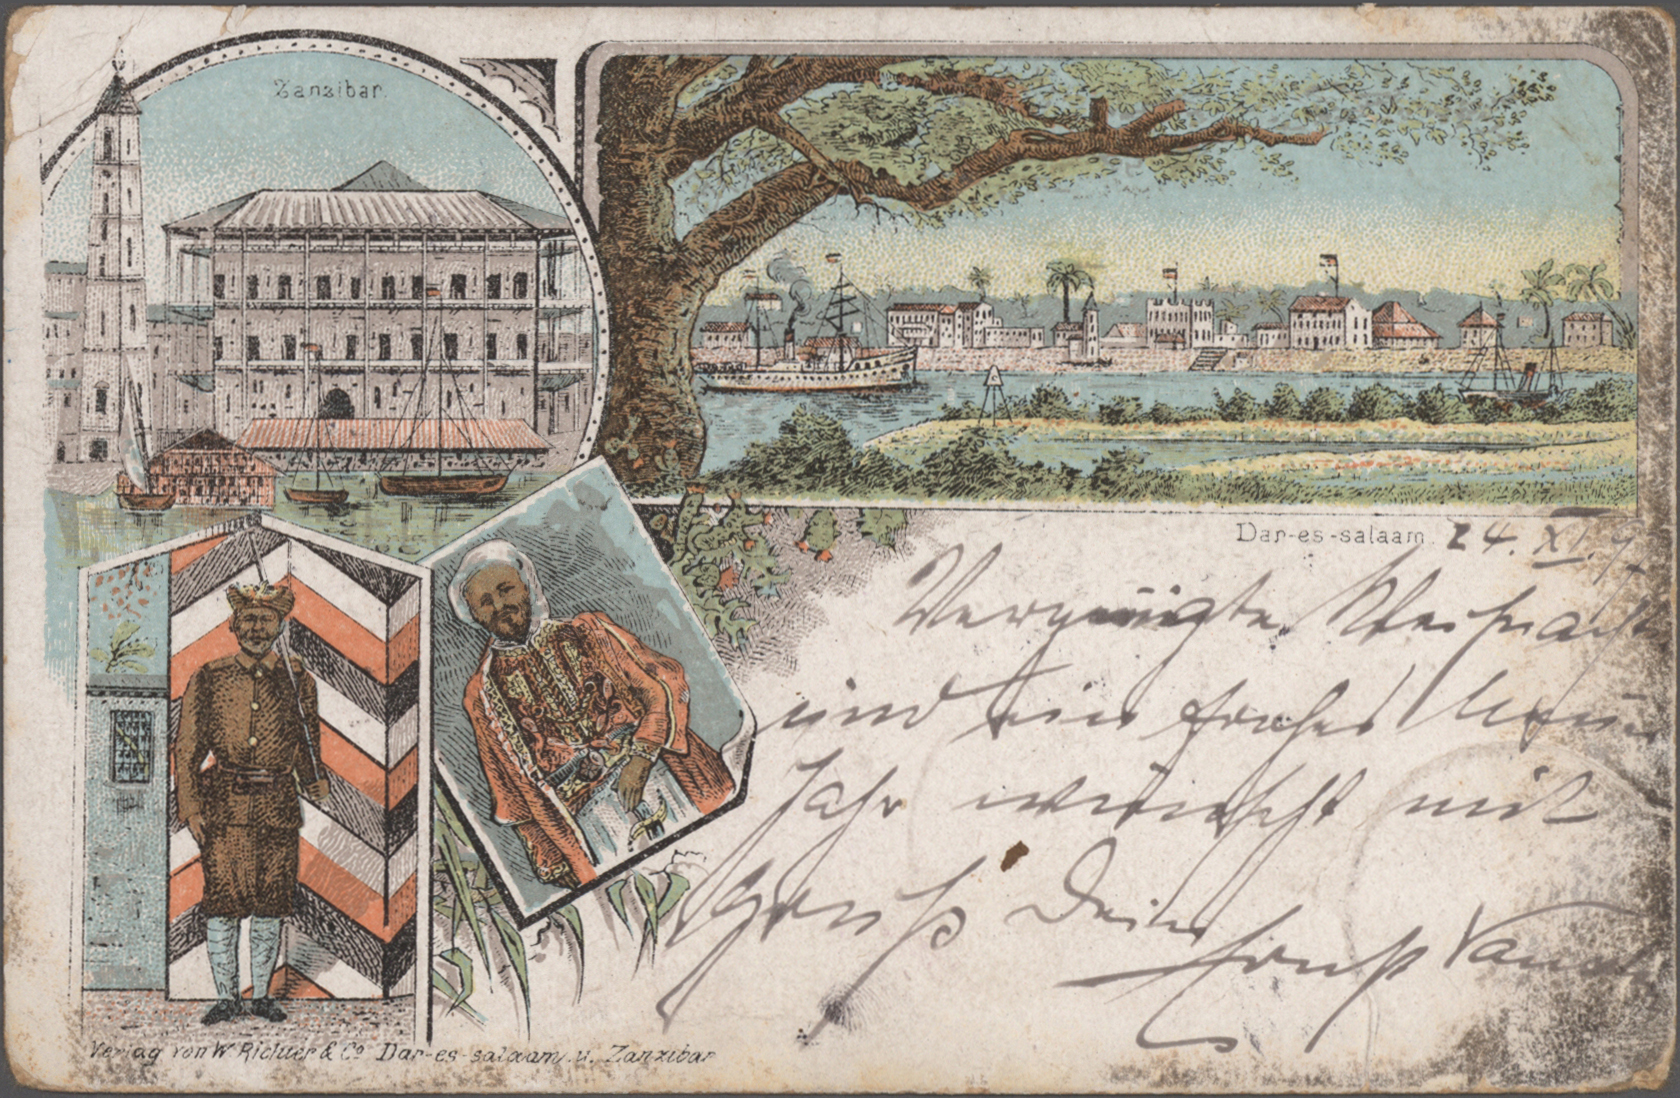 Zanzibar.
Dar-es-salaam.
24. XI. 9
Vergnügte Weihnacht
und ein frohes Neu
Jahr wünscht mit
Gruß Dein
Ernst
Verlag von W. Richter & Co Dar-es-salaam u. Zanzibar